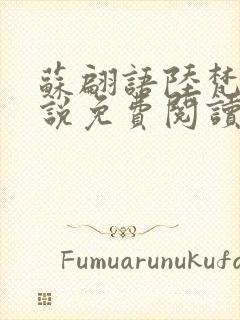 蘇翩語陸梵
說免費閱讀
Fumuarunukufo